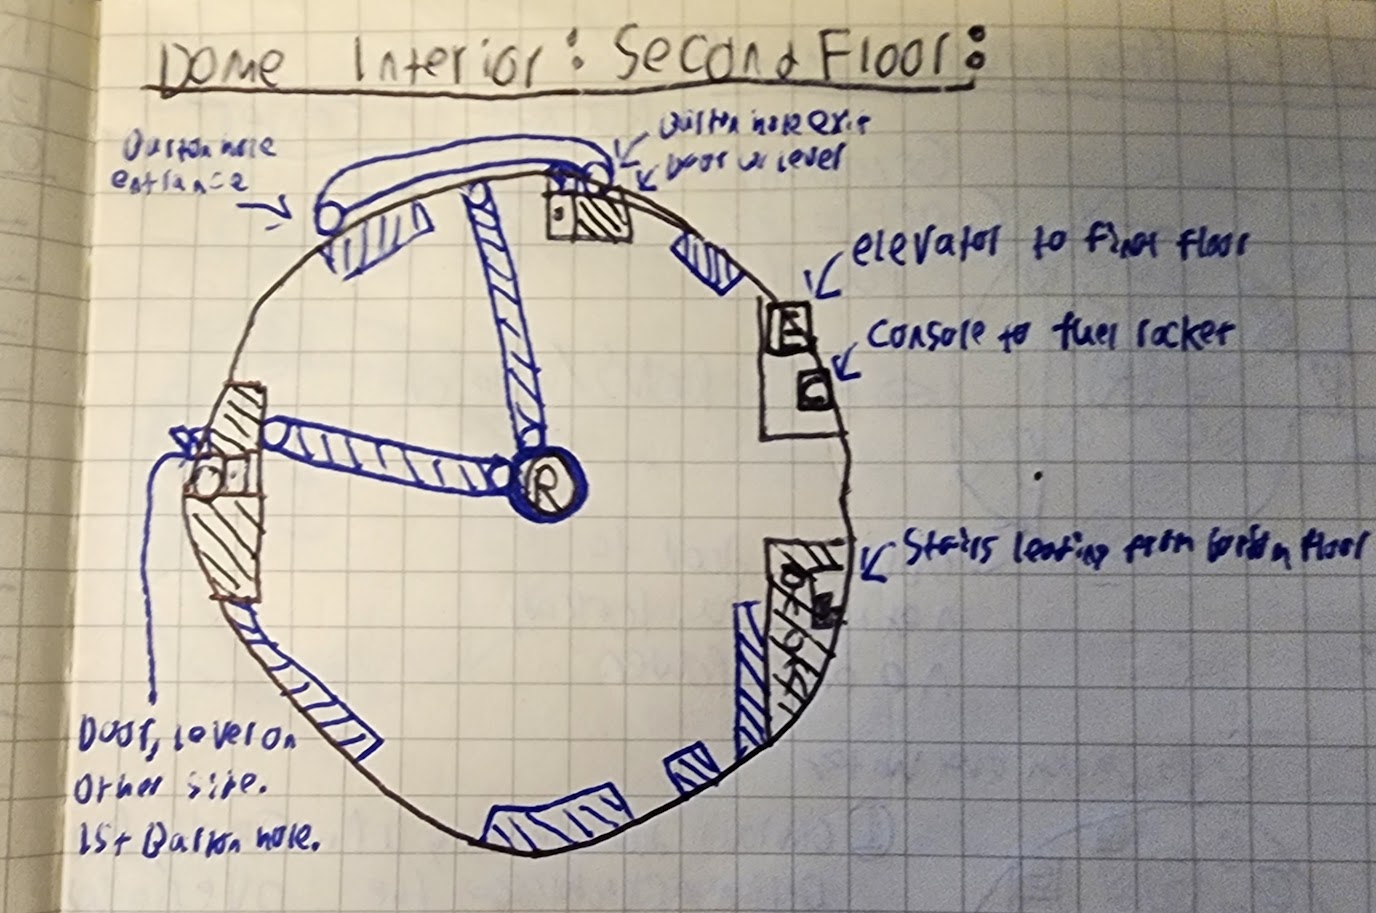 Dome Interior: Second Floor:
Barton hole
entrance
Barton hole exit
Door w lever
elevator to first floor
Console to fuel rocket
E
C
R
Stairs leating from bottom floor
Door, lever on
Other side.
1st Barton hole.